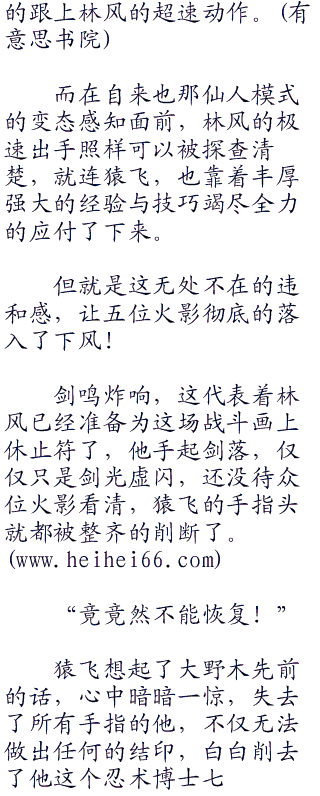 的跟上林风的超速动作。(有
意思书院)
而在自来也那仙人模式
的变态感知面前，林风的极
速出手照样可以被探查清
楚，就连猿飞，也靠着丰厚
强大的经验与技巧竭尽全力
的应付了下来。
但就是这无处不在的违
和感，让五位火影彻底的落
入了下风！
剑鸣炸响，这代表着林
风已经准备为这场战斗画上
休止符了，他手起剑落，仅
仅只是剑光虚闪，还没待众
位火影看清，猿飞的手指头
就都被整齐的削断了。
(www.heihei66.com)
“竟竟然不能恢复！”
猿飞想起了大野木先前
的话，心中暗暗一惊，失去
了所有手指的他，不仅无法
做出任何的结印，白白削去
了他这个忍术博士七